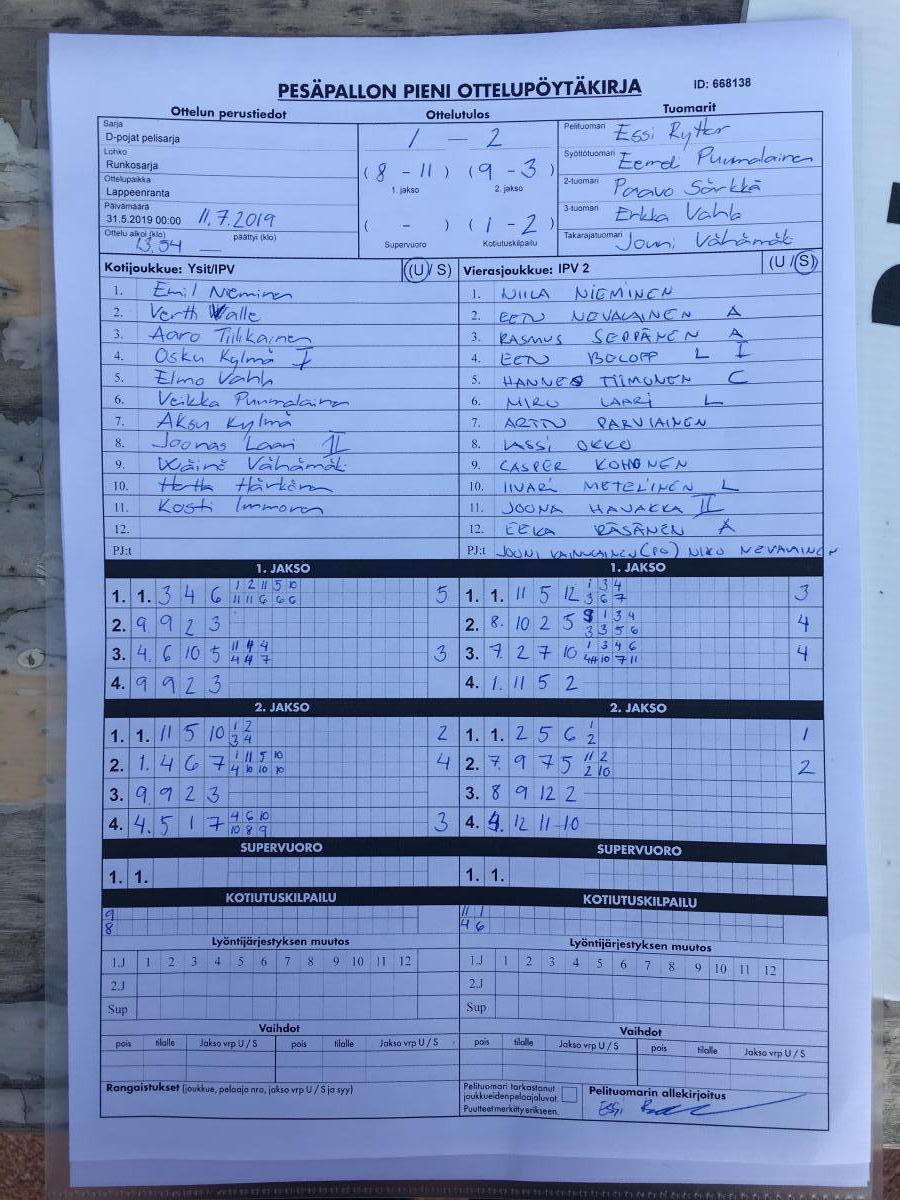 PESÄPALLON PIENI OTTELUPÖYTÄKIRJA ID: 668138
Ottelun perustiedot Ottelutulos Tuomarit
Sarja
D-pojat pelisarja
Lohko
Runkosarja
Ottelupaikka
Lappeenranta
Päivämäärä
31.5.2019 00:00 11.7.2019
Ottelu alkoi (klo) päättyi (klo)
13.54
1 — 2
(8 - 11) (9 - 3)
1. jakso 2. jakso
( - ) (1 - 2)
Supervuoro Kotiutuskilpailu
Pelituomari Essi
Syöttötuomari Puumalainen
2-tuomari Paavo Särkkä
3-tuomari Erkka Vahla
Takarajatuomari Jouni Vähämäk
Kotijoukkue: Ysit/IPV (U / S)
1. Emil Nieminen
2. Valle
3. Aaro Tiilikainen
4. Osku Kylmä I
5. Elmo Vahla
6. Veikka Puumalainen
7. Aksu Kylmä
8. Joonas Laari II
9. Väinö Vähämäk
10. Härkönen
11. Kosti Immonen
12.
PJ:t
Vierasjoukkue: IPV 2 (U / S)
1. NIILA NIEMINEN
2. EETU NEVALAINEN A
3. RASMUS SEPPÄNEN A
4. EETU L I
5. HANNES TIIMONEN C
6. MIRU LAARI L
7. ARTTU PARVIAINEN
8. LASSI OKKO
9. CASPER KOHONEN
10. IIVARI METELINEN L
11. JOONA HAVAKKA II
12. EEKA RÄSÄNEN A
PJ:t JOUNI VAINIKAINEN (PG) NIKO NEVALAINEN
1. JAKSO
1. 1. 3 4 6 1 2 11 5 10 5
11 11 6 6 6
2. 9 9 2 3
3. 4. 6 10 5 11 4 4 3
4 4 7
4. 9 9 2 3
1. JAKSO
1. 1. 11 5 12 1 3 4 3
3 6 7
2. 8. 10 2 5 1 3 4 4
3 3 5 6
3. 7. 2 7 10 1 3 4 6 4
10 7 11
4. 1. 11 5 2
2. JAKSO
1. 1. 11 5 10 1 2 2
3 4
2. 1. 4 6 7 1 11 5 10 4
4 10 10 10
3. 9 9 2 3
4. 4. 5 1 7 4 6 10 3
10 8 9
2. JAKSO
1. 1. 2 5 6 1 1
2
2. 7. 9 7 5 11 2 2
2 10
3. 8 9 12 2
4. 4. 12 11 10
SUPERVUORO
1. 1.
SUPERVUORO
1. 1.
KOTIUTUSKILPAILU
9
8
KOTIUTUSKILPAILU
11 1
4 6
Lyöntijärjestyksen muutos
1.J 1 2 3 4 5 6 7 8 9 10 11 12
2.J
Sup
Lyöntijärjestyksen muutos
1.J 1 2 3 4 5 6 7 8 9 10 11 12
2.J
Sup
Vaihdot
pois tilalle Jakso vrp U / S pois tilalle Jakso vrp U / S
Vaihdot
pois tilalle Jakso vrp U / S pois tilalle Jakso vrp U / S
Rangaistukset (joukkue, pelaaja nro, jakso vrp U / S ja syy)
Pelituomari tarkastanut
joukkueidenpelaajaluvat.
Puutteetmerkittyerikseen.
Pelituomarin allekirjoitus
Essi